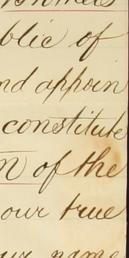 blic of
nd appoin
constitute
n of the
our true
ur name